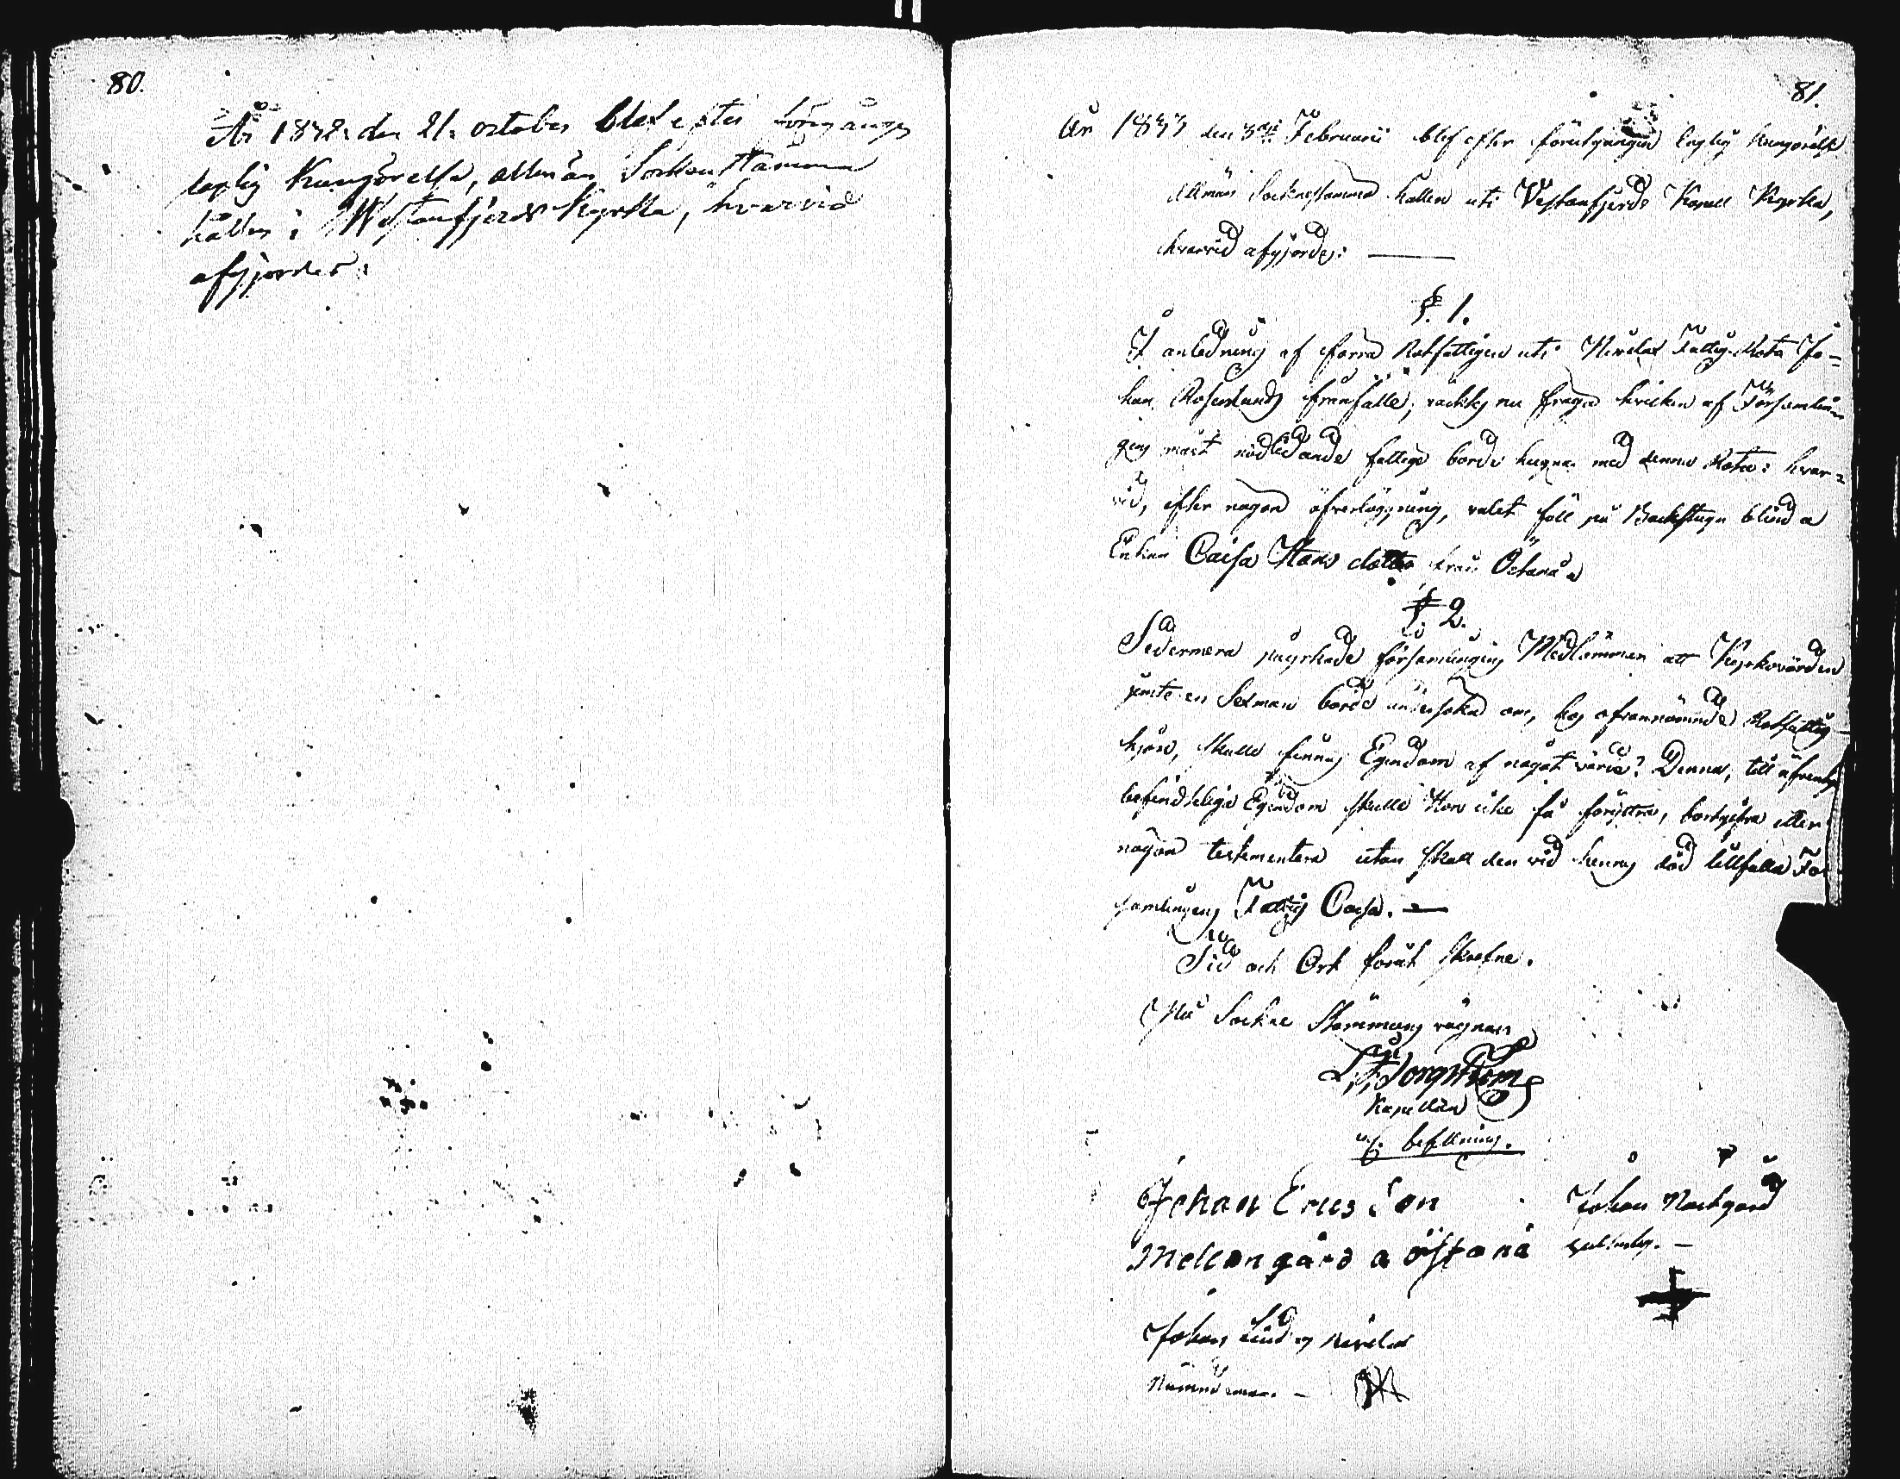 80.
År 1832 den 21. october blef efter föregången
laglig Kungörelse, allmän Sockenstämma
hållen i Westanfjerds Kyrka, hvarvid
afgjordes:
81.
År 1833 den 3die Februarii blef efter förutgången laglig kungörelse
allmän Sockenstämma hållen uti Vestanfjerds Kapell Kyrka,
hvarvid afgjordes:
§. 1.
I anledning af förra Rotfattigen uti Nivelax Fattig-Rota Jo-
han Roslunds frånfälle, väcktes nu fråga hvilken af Församlin-
gens mäst nödlidande fattige borde hugnas med denna Rota: hvar-
vid, efter någon öfverläggning, valet föll på Backstugu blinda
Enkan Caisa Hans dotter från Östanå
§ 2.
Sedermera påyrkade församlingens Medlemmar att Kyrkovärden
jemte en Sexman borde undersöka om, hos ofvannämnde Rotfattig-
hjon, skulle finnas Egendom af något värde? Denna, till äfventyrs
befindtelige Egendom skulle Hon icke få föryttra, bortgifva eller
någon testamentera utan skall den vid hennes död tillfalla För-
samlingens Fattig Cassa. —
Tid och Ort förut skrefne.
På Sockne Stämmans vägnar
Kapellan
Johan Ericsson
Mellangård a östanå
Johan Norrgård
Johan Lind Nivelax
Nämndeman. —